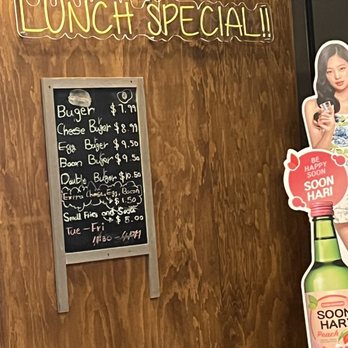 LUNCH SPECIAL!!
Buger $7.99
Cheese Buger $8.99
Egg Buger $9.50
Bacon Buger $9.50
Duble Buger $10.50
Extra Cheese, Egg, Bacon
$1.50
Small Fries and Soda
$5.00
Tue - Fri
11:30 -
BE
HAPPY
SOON
SOON
HARI
SOON
HARI
Peach